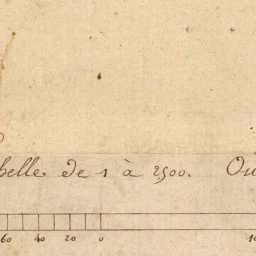 helle de 1 à 2500. Ou
60 40 20 0 10